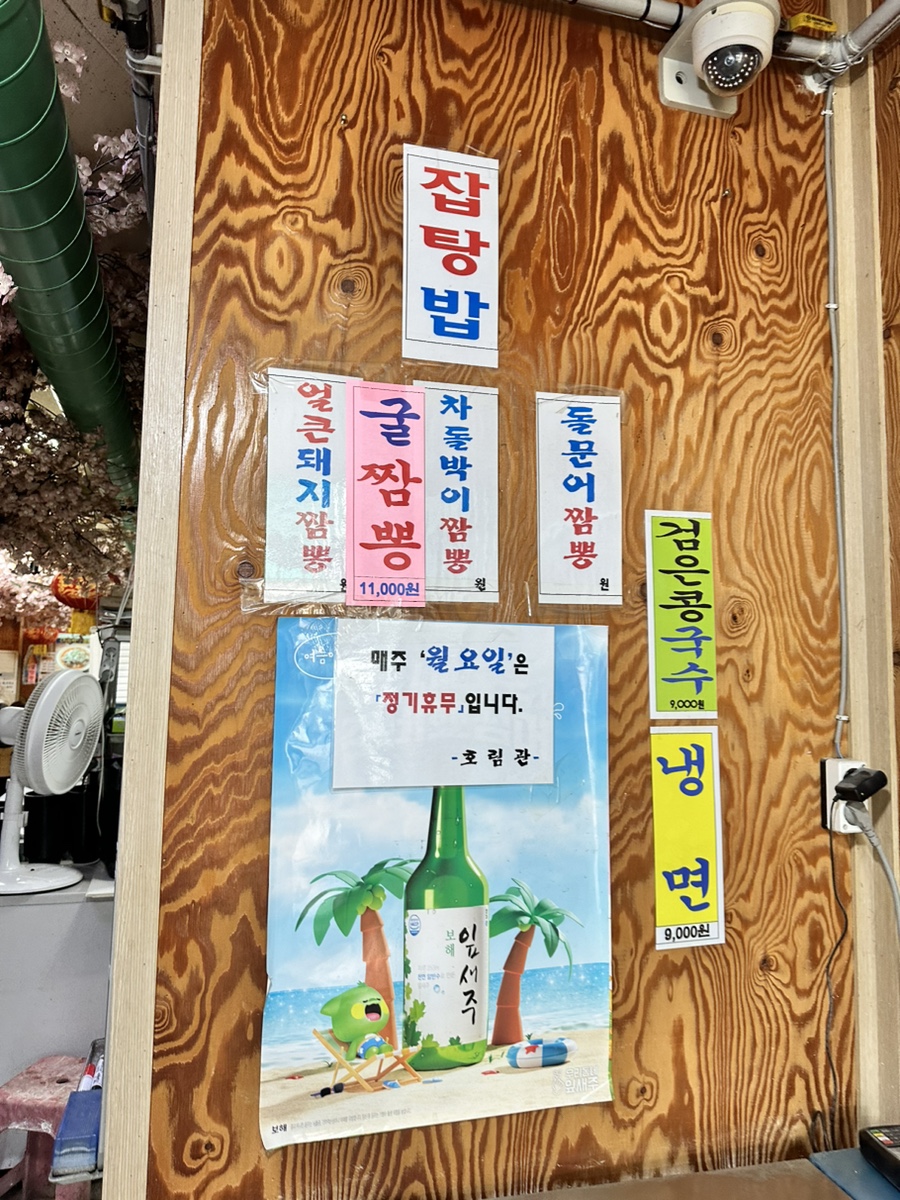 잡탕밥
얼큰돼지짬뽕
원
굴짬뽕
11,000원
차돌박이짬뽕
원
돌문어짬뽕
원
검은콩국수
9,000원
냉면
9,000원
매주 '월요일'은
「정기휴무」입니다.
-호림관-
여름
보해
잎새주
잎새주
보해